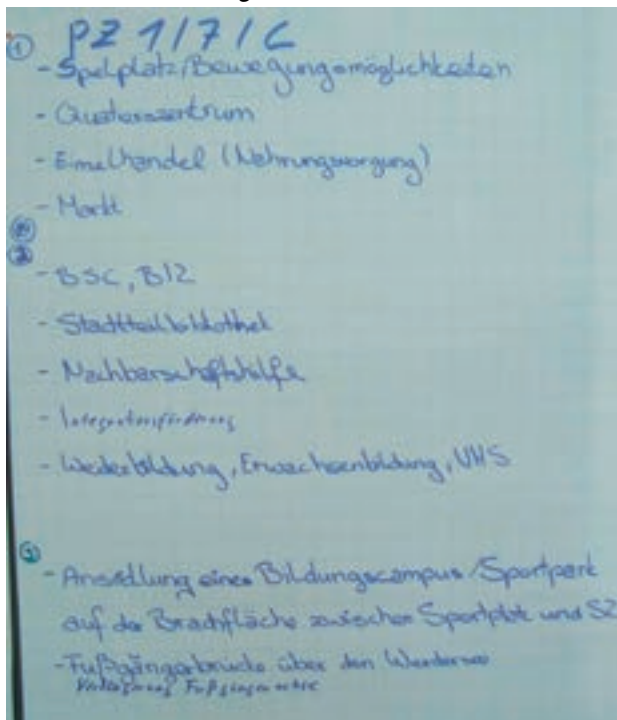 PZ 1/7/C
①
- Spielplatz/Bewegungsmöglichkeiten
- Quatierszentrum
- Einzelhandel (Nahrungsvorgung)
- Markt
②
- BSC, BIZ
- Stadtteilbibliothek
- Nachbarschaftshilfe
- Integrationsförderung
- Weiterbildung, Erwachsenbildung, VHS
- Ansiedlung eines Bildungscampus/Sportpark
auf der Brachfläche zwischen Sportplatz und SZ
- Fußgängerbrücke über den Werdersee